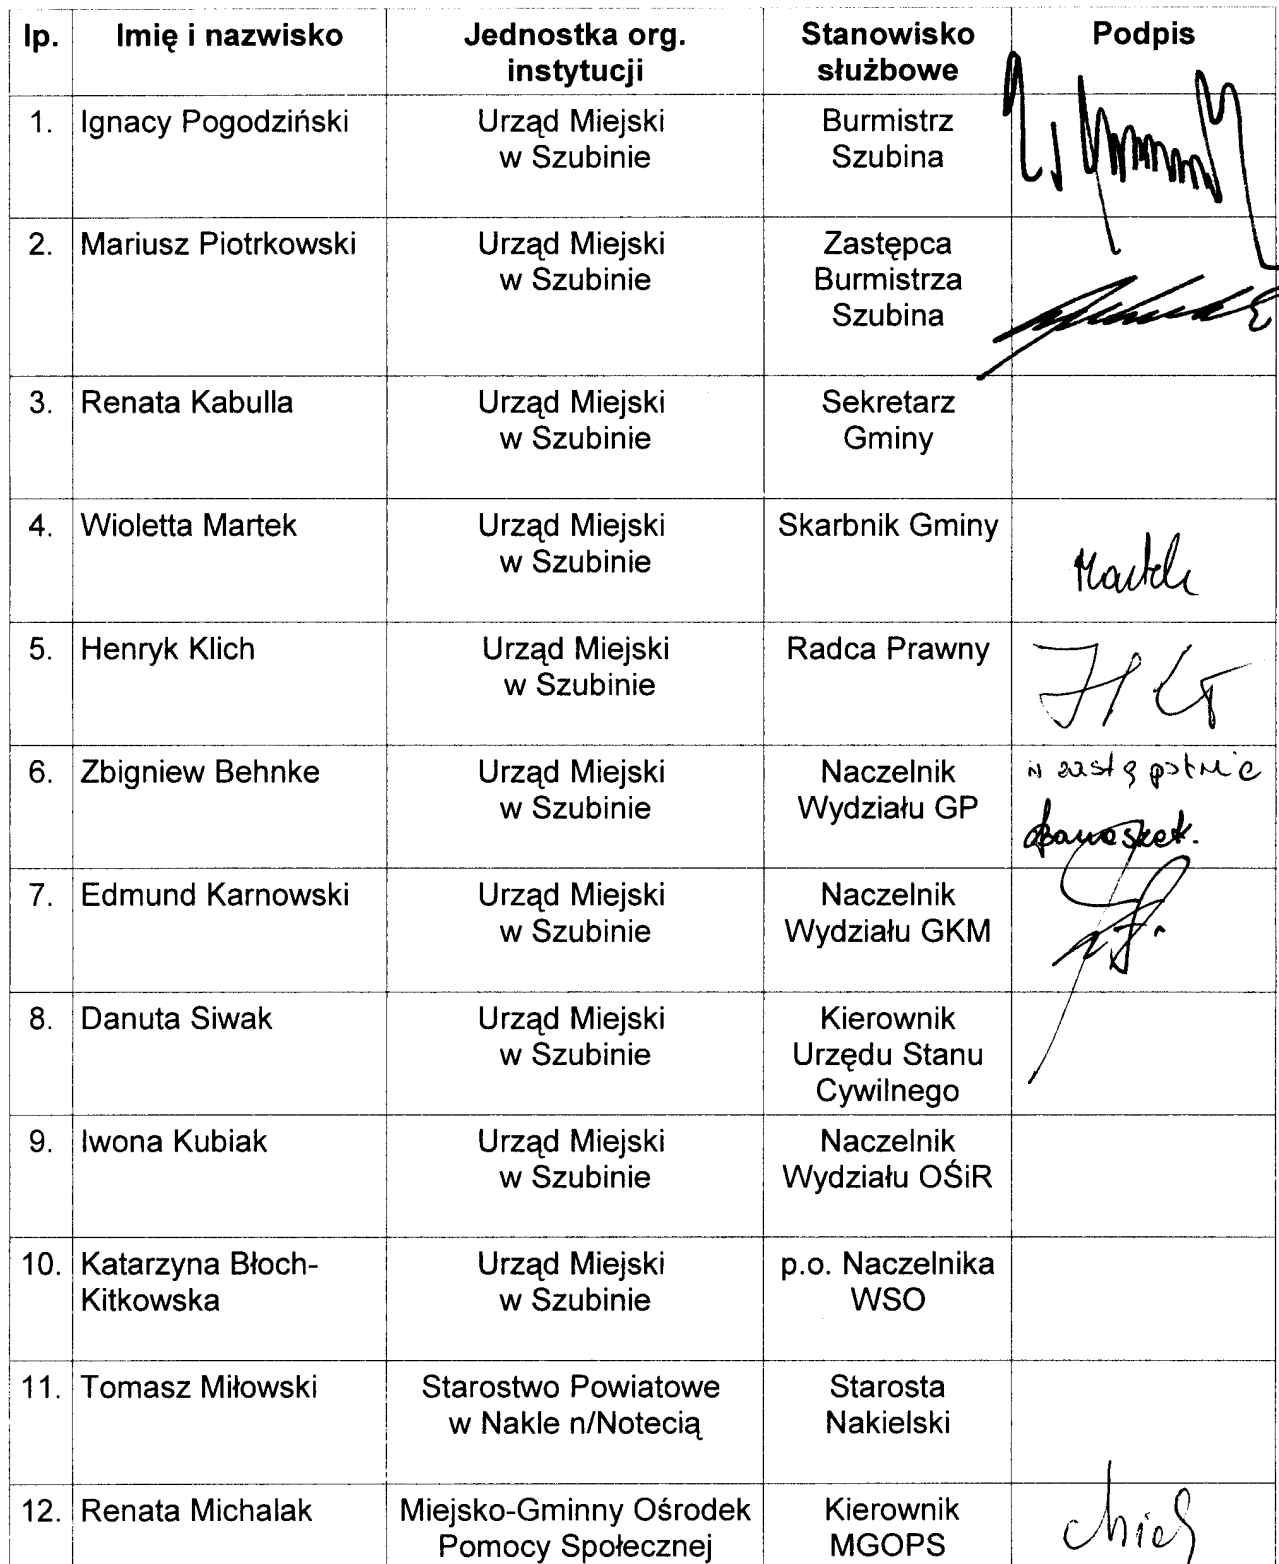 lp. Imię i nazwisko Jednostka org. instytucji Stanowisko służbowe Podpis
1. Ignacy Pogodziński Urząd Miejski w Szubinie Burmistrz Szubina
2. Mariusz Piotrkowski Urząd Miejski w Szubinie Zastępca Burmistrza Szubina
3. Renata Kabulla Urząd Miejski w Szubinie Sekretarz Gminy
4. Wioletta Martek Urząd Miejski w Szubinie Skarbnik Gminy Martek
5. Henryk Klich Urząd Miejski w Szubinie Radca Prawny
6. Zbigniew Behnke Urząd Miejski w Szubinie Naczelnik Wydziału GP
7. Edmund Karnowski Urząd Miejski w Szubinie Naczelnik Wydziału GKM
8. Danuta Siwak Urząd Miejski w Szubinie Kierownik Urzędu Stanu Cywilnego
9. Iwona Kubiak Urząd Miejski w Szubinie Naczelnik Wydziału OŚiR
10. Katarzyna Błoch-Kitkowska Urząd Miejski w Szubinie p.o. Naczelnika WSO
11. Tomasz Miłowski Starostwo Powiatowe w Nakle n/Notecią Starosta Nakielski
12. Renata Michalak Miejsko-Gminny Ośrodek Pomocy Społecznej Kierownik MGOPS